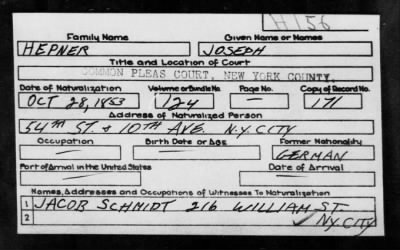 H156
Family Name Given Name or Names
HEPNER JOSEPH
Title and Location of Court
COMMON PLEAS COURT, NEW YORK COUNTY.
Date of Naturalization Volume or Bundle No. Page No. Copy of Record No.
OCT 28, 1853 124 — 171
Address of Naturalized Person
54TH ST. & 10TH AVE. N.Y. CITY
Occupation Birth Date or Age Former Nationality
GERMAN
Port of Arrival in the United States Date of Arrival
Names, Addresses and Occupations of Witnesses To Naturalization
1 JACOB SCHMIDT 216 WILLIAM ST.
2 N.Y. CITY